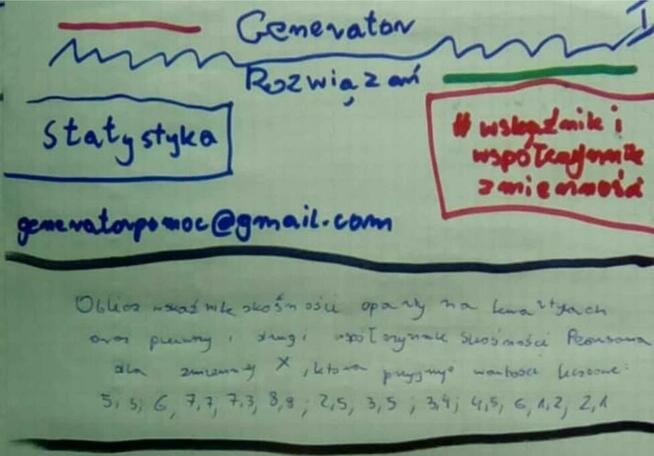 Generator
Rozwiązań
Statystyka
# wskaźnik i
współczynnik
zmienności
generatorpomoc@gmail.com
Oblicz wskaźnik skośności oparty na kwartylach
oraz pierwszy i drugi współczynnik skośności Pearsona
dla zmiennej X, która przyjmuje wartości liczbowe:
6, 7,7, 7,3, 8,9; 2,5, 3,5; 3,4; 4,5, 6, 1,2, 2,1